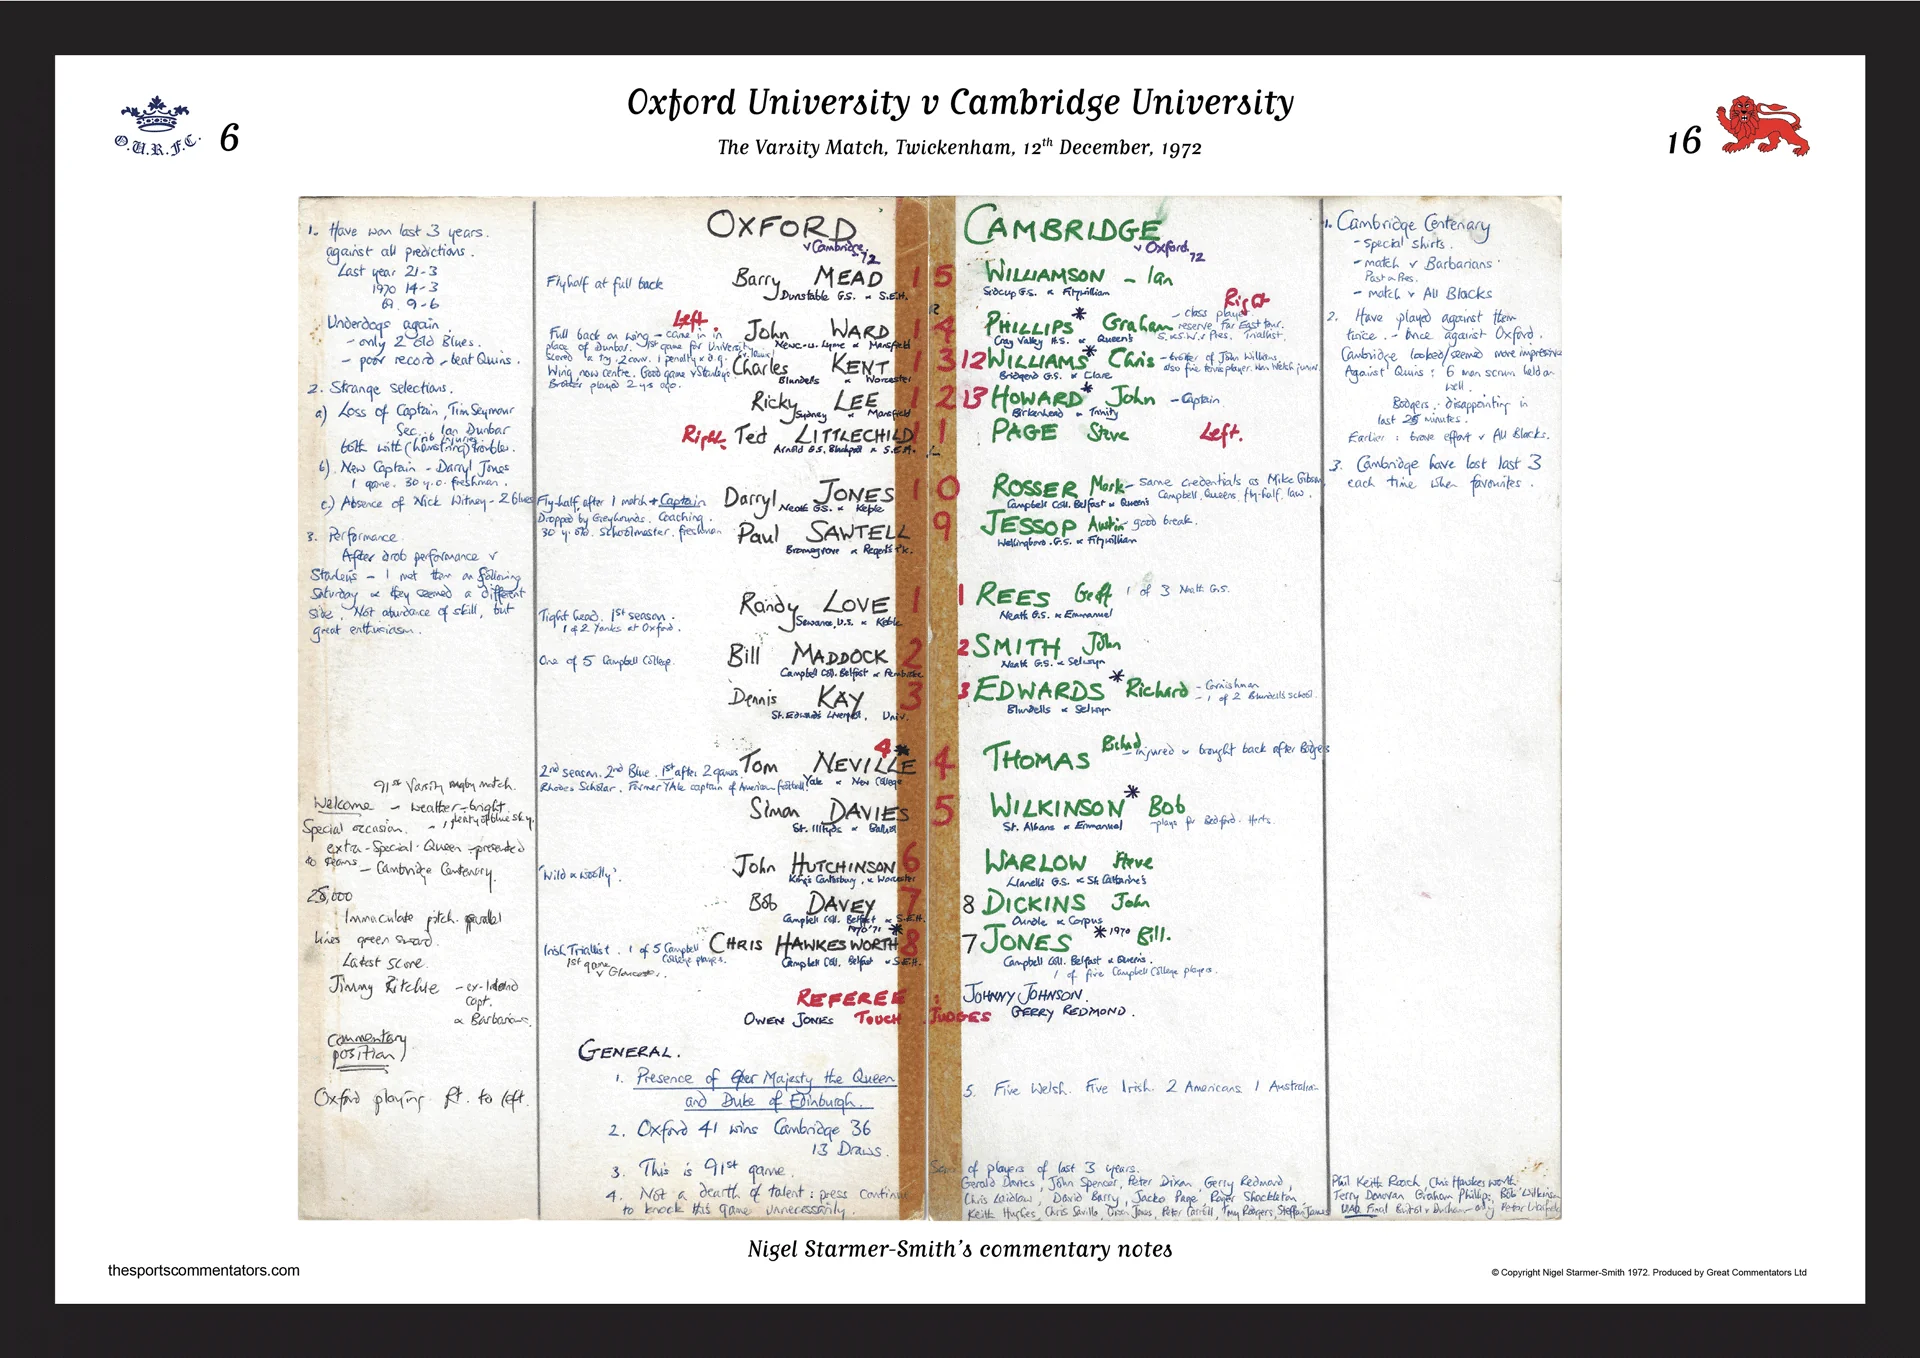 Oxford University v Cambridge University
The Varsity Match, Twickenham, 12th December, 1972
O.U.R.F.C.
6
16
1. Have won last 3 years.
against all predictions.
Last year 21-3
1970 14-3
69. 9-6
Underdogs again.
- only 2 old Blues.
- poor record - beat Quins.
2. Strange selections.
a) Loss of Captain, Tim Seymour
Sec. Ian Dunbar
both with (hamstring) troubles.
rib injuries
b) New Captain - Darryl Jones
1 game. 30 y.o. freshman.
c) Absence of Nick Witney - 2 blues
3. Performance.
After drab performance v
Stanley's - I met them on following
Saturday & they seemed a different
side. Not abundance of skill, but
great enthusiasm.
91st Varsity rugby match.
Welcome - weather - bright
plenty of blue sky.
Special occasion.
extra-Special-Queen-presented
to teams - Cambridge Centenary.
28,000
Immaculate pitch. parallel
lines green sward.
Latest score.
Jimmy Ritchie - ex-
capt.
& Barbarians.
Commentary
position
Oxford playing Rt. to left.
OXFORD
v Cambridge. 72
Flyhalf at full back
Barry MEAD 15
Dunstable G.S. & S.E.H.
Left.
Full back on wing - came in in
place of Dunbar. 1st game for University
scored a try, 2 conv. 1 penalty & d.g.
John WARD 14
Newc-u-Lyme & Mansfield
Wing now centre. Good game v Stanleys.
Brother played 2 ys ago.
Charles KENT 13
Blundells & Worcester
Ricky LEE 12
Sydney & Mansfield
Right Ted LITTLECHILD 11
Arnold G.S. Blackpool & S.E.H.
Fly-half, after 1 match & Captain
Dropped by Greyhounds. Coaching.
30 y. old. Schoolmaster. freshman
Darryl JONES 10
Neath G.S. & Keble
Paul SAWTELL 9
Bromsgrove & Regent's Pk.
Tight head. 1st season.
1 of 2 Yanks at Oxford.
Randy LOVE 1
Sewanee, U.S. & Keble
One of 5 Campbell College.
Bill MADDOCK 2
Campbell Coll. Belfast & Pembroke
Dennis KAY 3
St. Edwards Liverpool, Univ.
4 *
2nd season. 2nd Blue. 1st after 2 games.
Rhodes Scholar. Former YAle captain of American football!
Tom NEVILLE 4
Yale & New College
Simon DAVIES 5
St. Illtyds & Balliol
'Wild & Woolly'.
John HUTCHINSON 6
King's Canterbury, & Worcester
Bob DAVEY 7
Campbell Coll. Belfast & S.E.H.
1970 '71 *
Irish Triallist. 1 of 5 Campbell
College players.
1st game
v Gloucester.
CHRIS HAWKESWORTH 8
Campbell Coll. Belfast & S.E.H.
REFEREE : JOHNNY JOHNSON.
OWEN JONES TOUCH JUDGES GERRY REDMOND.
GENERAL.
1. Presence of Her Majesty the Queen
and Duke of Edinburgh.
2. Oxford 41 wins Cambridge 36
13 Draws.
3. This is 91st game.
4. Not a dearth of talent: press continue
to knock this game unnecessarily.
CAMBRIDGE
v Oxford. 72
WILLIAMSON - Ian
Sidcup G.S. & Fitzwilliam
Right
PHILLIPS * Graham
- class player
reserve Far East tour.
Triallist.
Cray Valley H.S. & Queens'
12 WILLIAMS * Chris
- brother of John Williams
also fine tennis player. Won Welch junior.
Bridgend G.S. & Clare
13 HOWARD * John - Captain
Birkenhead & Trinity
PAGE Steve Left.
ROSSER Mark - same credentials as Mike Gibson
Campbell, Queens, fly-half, law.
Campbell Coll. Belfast & Queens
JESSOP Austin - good break.
Wellingboro. G.S. & Fitzwilliam
1 REES Geoff 1 of 3 Neath G.S.
Neath G.S. & Emmanuel
2 SMITH John
Neath G.S. & Selwyn
3 EDWARDS * Richard
- Cornishman
- 1 of 2 Blundells school.
Blundells & Selwyn
THOMAS Richard - injured & brought back after Bodgers
WILKINSON * Bob
- plays for Bedford. Herts.
St. Albans & Emmanuel
WARLOW Steve
Llanelli G.S. & St Catharine's
8 DICKINS John
Oundle & Corpus
7 JONES * 1970 Bill.
Campbell Coll. Belfast & Queens.
1 of five Campbell College players.
5. Five Welsh. Five Irish. 2 Americans 1 Australian
of players of last 3 years.
Gerald Davies, John Spencer, Peter Dixon, Gerry Redmond,
Chris Laidlaw, David Barry, Jacko Page, Roger Shackleton
Keith Hughes, Chris Saville, Jones, Peter Carroll, Tony Rodgers, Steffan Jones
1. Cambridge Centenary
- special shirts.
- match v Barbarians
Past & Pres.
- match v All Blacks
2. Have played against them
twice. - once against Oxford.
Cambridge looked/seemed more impressive
Against Quins: 6 man scrum held on
well.
Bodgers: disappointing in
last 25 minutes.
Earlier: brave effort v All Blacks.
3. Cambridge have lost last 3
each time when favourites.
Phil Keith Roach, Chris Hawkesworth
Terry Donovan Graham Phillips, Bob Wilkinson
UAU Final Bristol v Durham - only Peter Warfield
Nigel Starmer-Smith's commentary notes
thesportscommentators.com
© Copyright Nigel Starmer-Smith 1972. Produced by Great Commentators Ltd